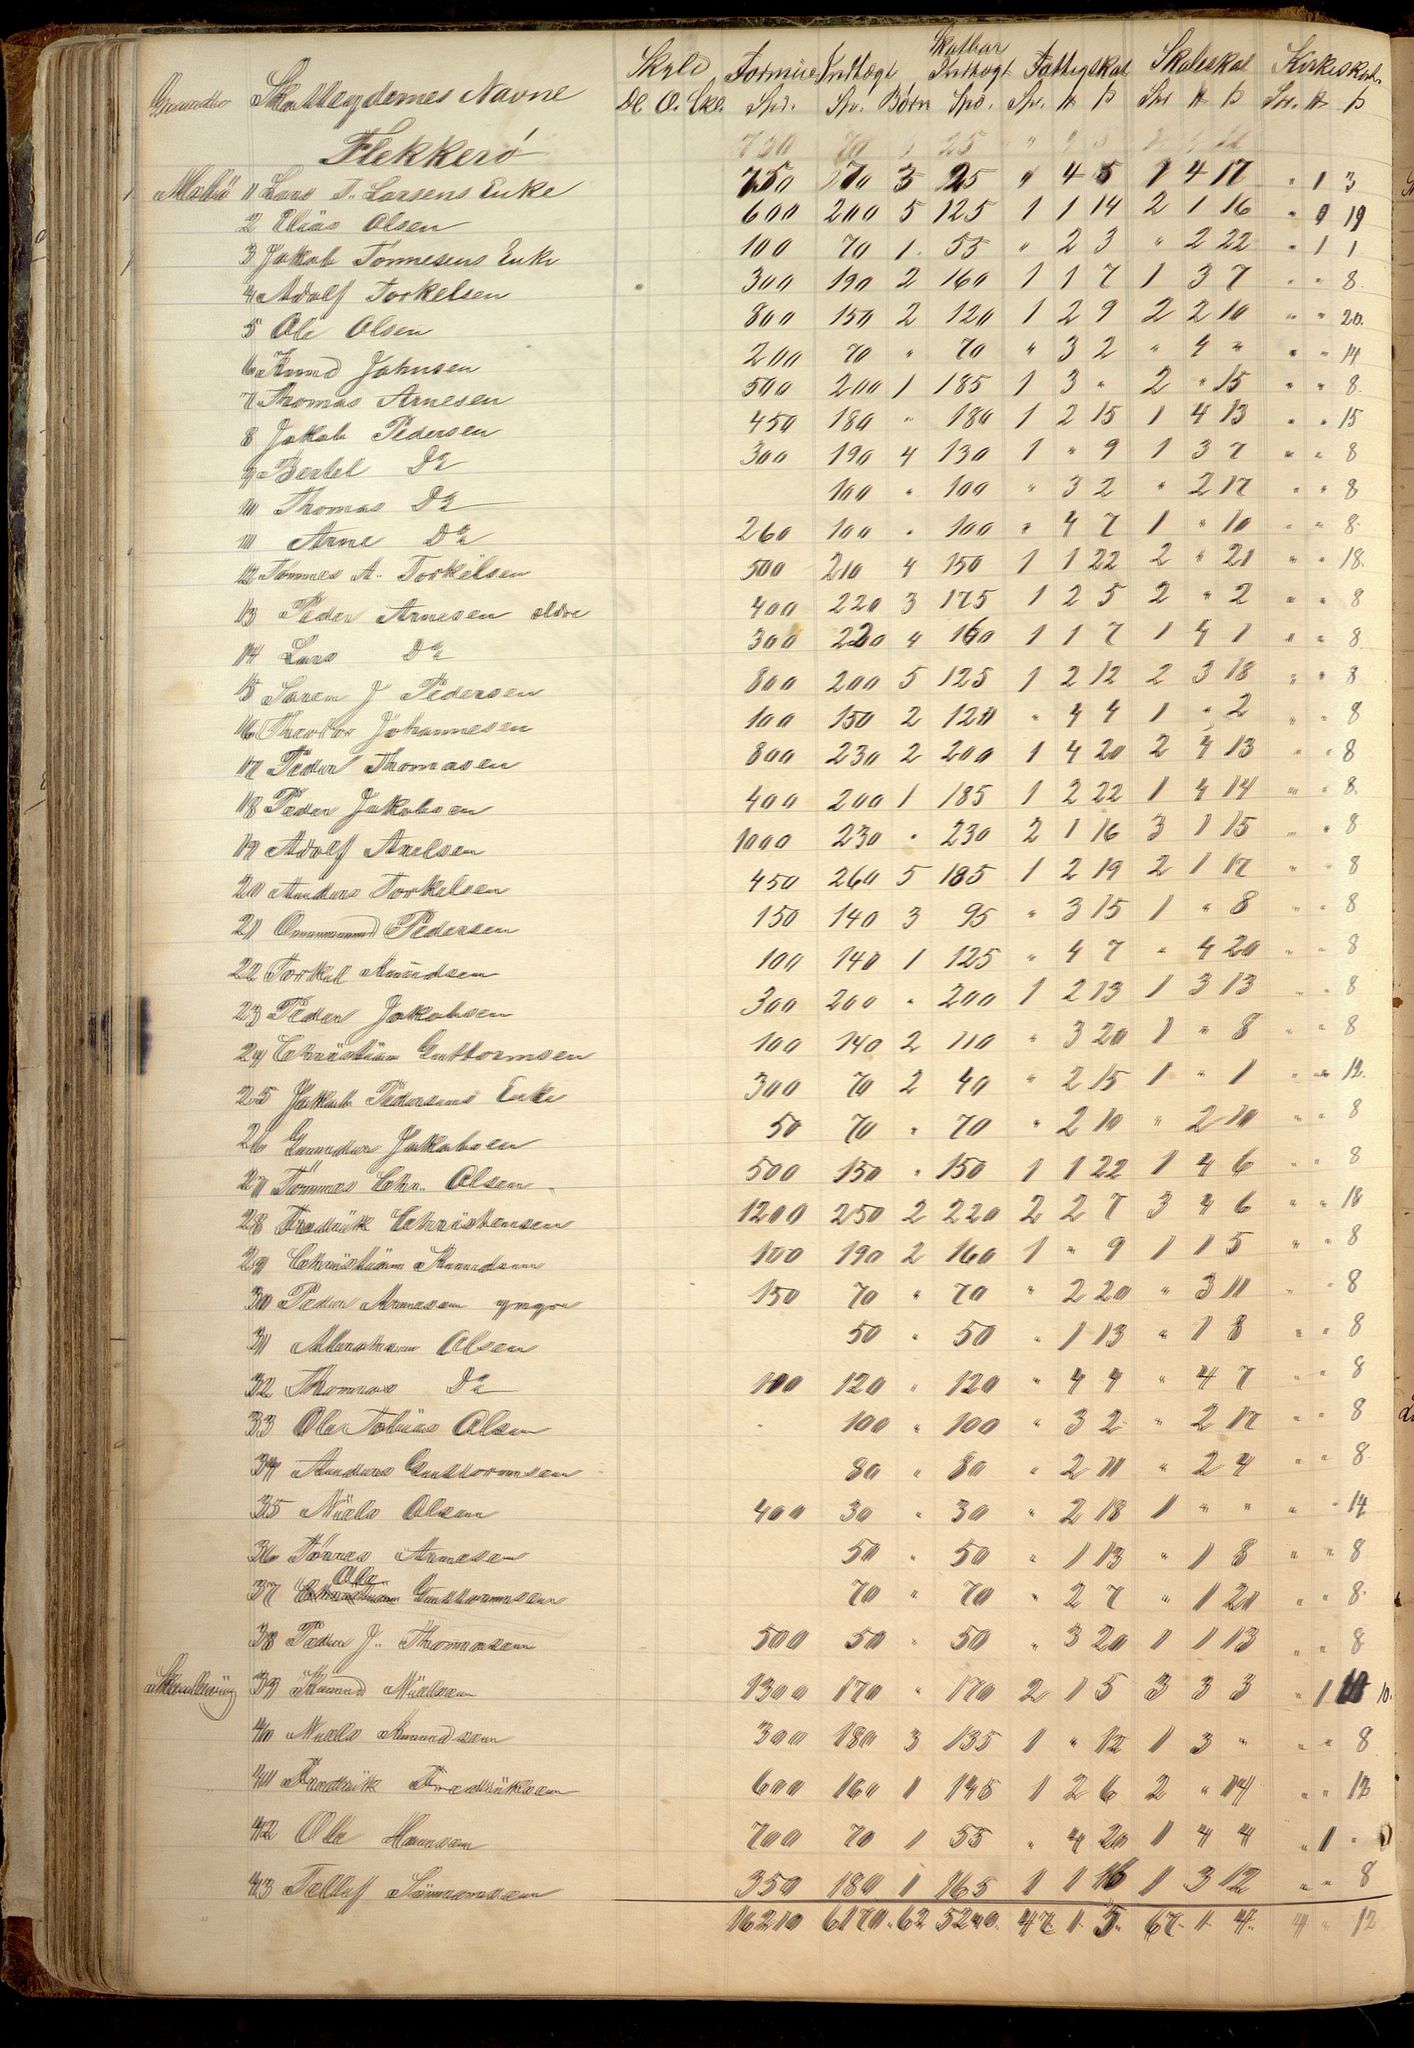 Skatbar
Skyld Formue Indtægt Indtægt Fattigskat Skoleskat Kirkeskat
Skatteydernes Navne
Dl. O. Skl. Spd. Sp. Børn Spd. Sp. # ß Spd # ß Sp. # ß
Flekkerø
750 70 25
1 Lars T. Larsens Enke 750 70 3 25 " 4 5 1 4 17 " 1 3
2 Elias Olsen 600 200 5 125 1 1 14 2 1 16 " " 19
3 Jakob Tønnesens Enke 100 70 1 55 " 2 3 " 2 22 " 1 1
4 Adolf Torkelsen 300 190 2 160 1 1 7 1 3 7 " " 8
5 Ole Olsen 800 150 2 120 1 2 9 2 2 10 " " 20
6 Knud Johnsen 200 70 " 70 " 3 2 " 4 " " " 14
7 Thomas Arnesen 500 200 1 185 1 3 " 2 " 15 " " 8
8 Jakob Pedersen 450 180 " 180 1 2 15 1 4 13 " " 15
9 Bertel Do 300 190 4 130 1 " 9 1 3 7 " " 8
10 Thomas Do 100 " 100 " 3 2 " 2 17 " " 8
11 Arne Do 260 100 " 100 " 4 7 1 " 10 " " 8
12 Tønnes A. Torkelsen 500 210 4 150 1 1 22 2 " 21 " " 18
13 Peder Arnesen ældre 400 220 3 175 1 2 5 2 " 2 " " 8
14 Lars Do 300 220 4 160 1 1 7 1 4 1 " " 8
15 Søren J Pedersen 800 200 5 125 1 2 12 2 3 18 " " 8
16 Theodor Johannesen 100 150 2 120 " 4 4 1 " 2 " " 8
17 Peder Thomasen 800 230 2 200 1 4 20 2 4 13 " " 8
18 Peder Jakobsen 400 200 1 185 1 2 22 1 4 14 " " 8
19 Adolf Axelsen 1000 230 " 230 2 1 16 3 1 15 " " 8
20 Anders Torkelsen 450 260 5 185 1 2 19 2 1 17 " " 8
21 Ommund Pedersen 150 140 3 95 " 3 15 1 " 8 " " 8
22 Torkel Knudsen 100 140 1 125 " 4 7 " 4 20 " " 8
23 Peder Jakobsen 300 200 " 200 1 2 13 1 3 13 " " 8
24 Christian Guttormsen 100 140 2 110 " 3 20 1 " 8 " " 8
25 Jakob Pedersens Enke 300 70 2 40 " 2 15 1 " 1 " " 12
26 Gunder Jakobsen 50 70 " 70 " 2 10 " 2 10 " " 8
27 Tønnes Chr. Olsen 500 150 " 150 1 1 22 1 4 6 " " 8
28 Fredrik Christensen 1200 250 2 220 2 2 7 3 4 6 " " 18
29 Christian Knudsen 100 190 2 160 1 " 9 1 1 5 " " 8
30 Peder Arnesen yngre 150 70 " 70 " 2 20 " 3 11 " 8
31 Abraham Olsen 50 " 50 " 1 13 " 1 8 " " 8
32 Thomas Do 100 120 " 120 " 4 4 " 4 7 " " 8
33 Ole Tobias Olsen 100 " 100 " 3 2 " 2 17 " " 8
34 Anders Guttormsen 80 " 80 " 2 11 " 2 4 " " 8
35 Niels Olsen 400 30 " 30 " 2 18 1 " " " " 14
36 Tønnes Arnesen 50 " 50 " 1 13 " 1 8 " " 8
Ole
37 Christian Guttormsen 70 " 70 " 2 7 " 1 20 " " 8
38 Peder J. Thomasen 500 50 " 50 " 3 20 1 1 13 " " 8
39 Knud Nielsen 1300 170 " 170 2 1 5 3 3 3 " 1 10 10
40 Niels Knudsen 300 180 3 135 1 " 12 1 3 " " " 8
41 Fredrik Fredriksen 600 160 1 145 1 2 6 2 " 14 " " 12
42 Ole Hansen 700 70 1 55 " 4 20 1 4 4 " 1 "
43 Tellef Simonsen 350 180 1 165 1 1 16 1 3 12 " " 8
16210 6170 62 5240 47 1 5 67 1 4 4 " 12